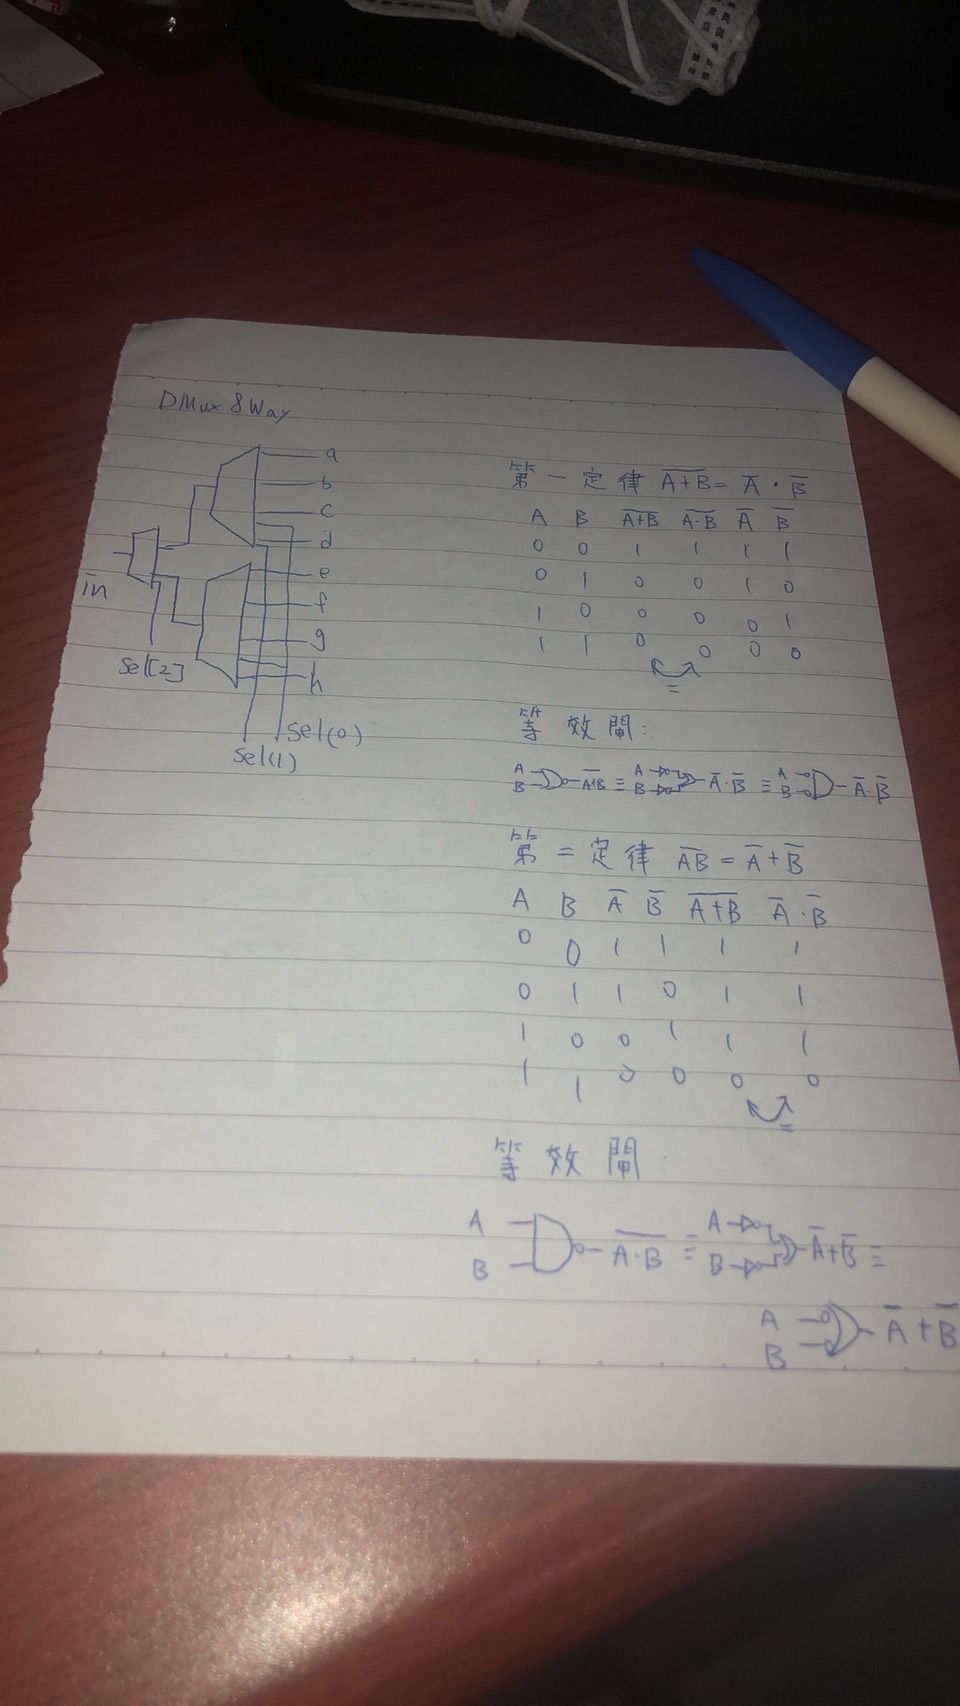 DMux 8Way
a
b
c
d
e
f
g
h
in
sel[2]
sel(0)
sel(1)
第一定律 A̅+̅B̅ = A̅ · B̅
A B A̅+̅B̅ A̅·̅B̅ A̅ B̅
0 0 1 1 1 1
0 1 0 0 1 0
1 0 0 0 0 1
1 1 0 0 0 0
=
等效閘:
A B A̅+̅B̅ ≡ A B A̅·B̅ ≡ A B A̅·B̅
第二定律 A̅B̅ = A̅ + B̅
A B A̅ B̅ A̅+̅B̅ A̅·B̅
0 0 1 1 1 1
0 1 1 0 1 1
1 0 0 1 1 1
1 1 0 0 0 0
=
等效閘:
A B A̅·̅B̅ ≡ A B A̅+B̅ ≡
A B A̅+B̅